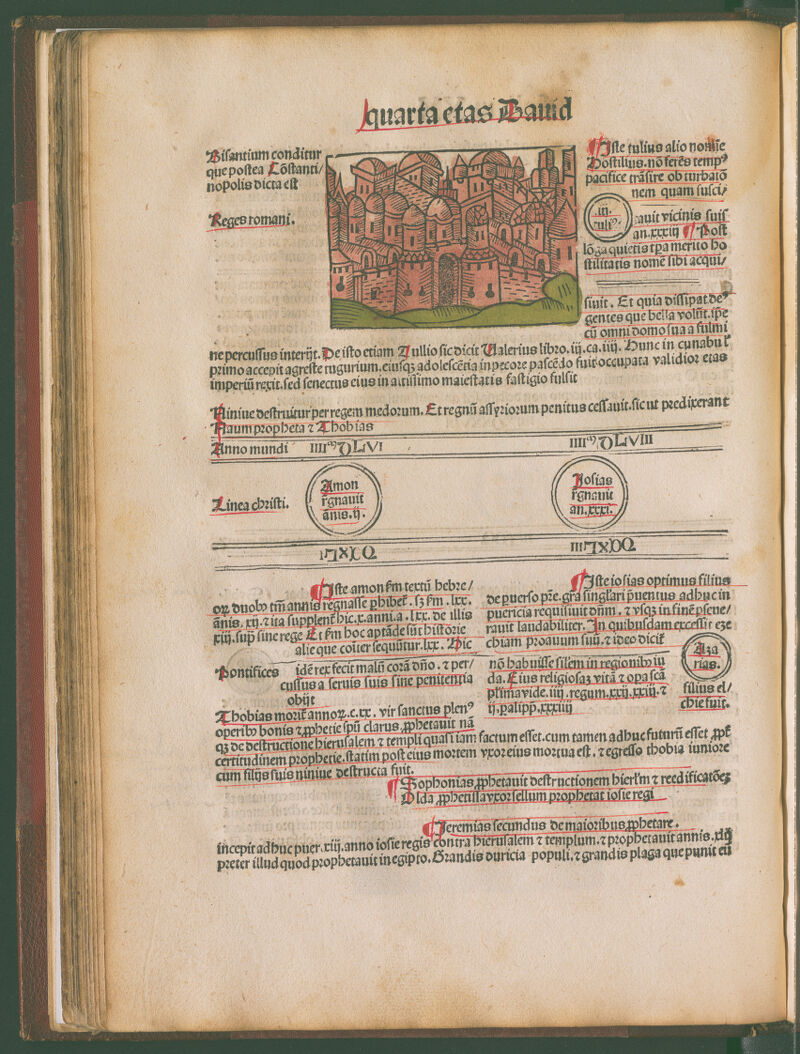 quarta etas Dauid
Bisantium conditur
que postea Cōstanti/
nopolis dicta est
Reges romani.
Iste tulius alio nomīe
Hostilius. nō ferēs tempꝰ
pacifice trāsire ob turbatō
nem quam susci/
in.
tuliꝰ.
tauit vicinis suis
an.xxxiij Post
lōga quietis tꝑa merito ho
stilitatis nomē sibi acqui/
siuit. Et quia dissipat deꝰ
gentes que bella volūt. ip̄e
cū omni domo sua a fulmi
ne percussus interijt. De isto etiam Tullio sic dicit Valerius libro.iij.ca.iiij. Hunc in cunabul̓
primo accepit agreste tugurium. eiusqꝫ adolescētia in pecore pascēdo fuit occupata validior etas
imperiū rexit. sed senectus eius in altissimo maiestatis fastigio fulsit
Niniue destruitur per regem medorum. Et regnū assyriorum penitus cessauit. sicut predixerant
Naum propheta ⁊ Thobias
Anno mundi IIIIᵐ VCLVI IIIIᵐ VCLVIII
Linea christi.
Amon
rēgnauit
anis.ij.
Iosias
rēgnauit
an.xxxi.
Iste amon ẜm textū hebre/
oꝝ duobꝰ tm̄ annis regnasse ꝑhibet̄. sꝫ ẜm .lxx.
ānis.xij. ⁊ ita supplent̄ hic.x.anni.a.lxx. de illis
xiij. suꝑ sine rege Et ẜm hoc aptāde sūt historie
alie que cōiter sequūtur.lxx. Hic
Pontifices
idē rex fecit malū corā dn̄o. ⁊ per/
cussus a seruis suis sine penitentia
obijt
Iste iosias optimus filius
de ꝑuerso pr̄e. gr̄a singlari p̄uentus adhuc in
puericia requisiuit dn̄m. ⁊ vsqꝫ in finē ꝑseue/
rauit laudabiliter. In quibusdam excessit eze
chiam proauum suū. ⁊ ideo dicit̄
nō habuisse sīlem in regionibꝰ iu
da. Eius religiosaꝫ vitā ⁊ opa scā
plīma vide.iiij.regum.xxij.xxiij.⁊
ij.palipp.xxxiiij
Aza
rias.
filius el/
chie fuit.
Thobias morit̄ annoꝝ.c.xx. vir sanctus plenꝰ
operibꝰ bonis ⁊ ꝓphetie spū clarus. ꝓphetauit nā
qꝫ de destructione hierusalem ⁊ templi quasi iam factum esset. cum tamen adhuc futurū esset ꝓpt̄
certitudinem prophetie. statim post eius mortem vxor eius mortua est. ⁊ egresso thobia iuniore
cum filijs suis niniue destructa fuit.
Sophonias ꝓphetauit destructionem hierl̄m ⁊ reedificatōeꝫ
Olda ꝓphetissa vxor sellum prophetat iosie regi
Jeremias secundus de maioribus ꝓphetare.
incepit adhuc puer.xiij.anno iosie regis contra hierusalem ⁊ templum. ⁊ prophetauit annis.xlij
preter illud quod prophetauit in egipto. Grandis duricia populi. ⁊ grandis plaga que punit eū